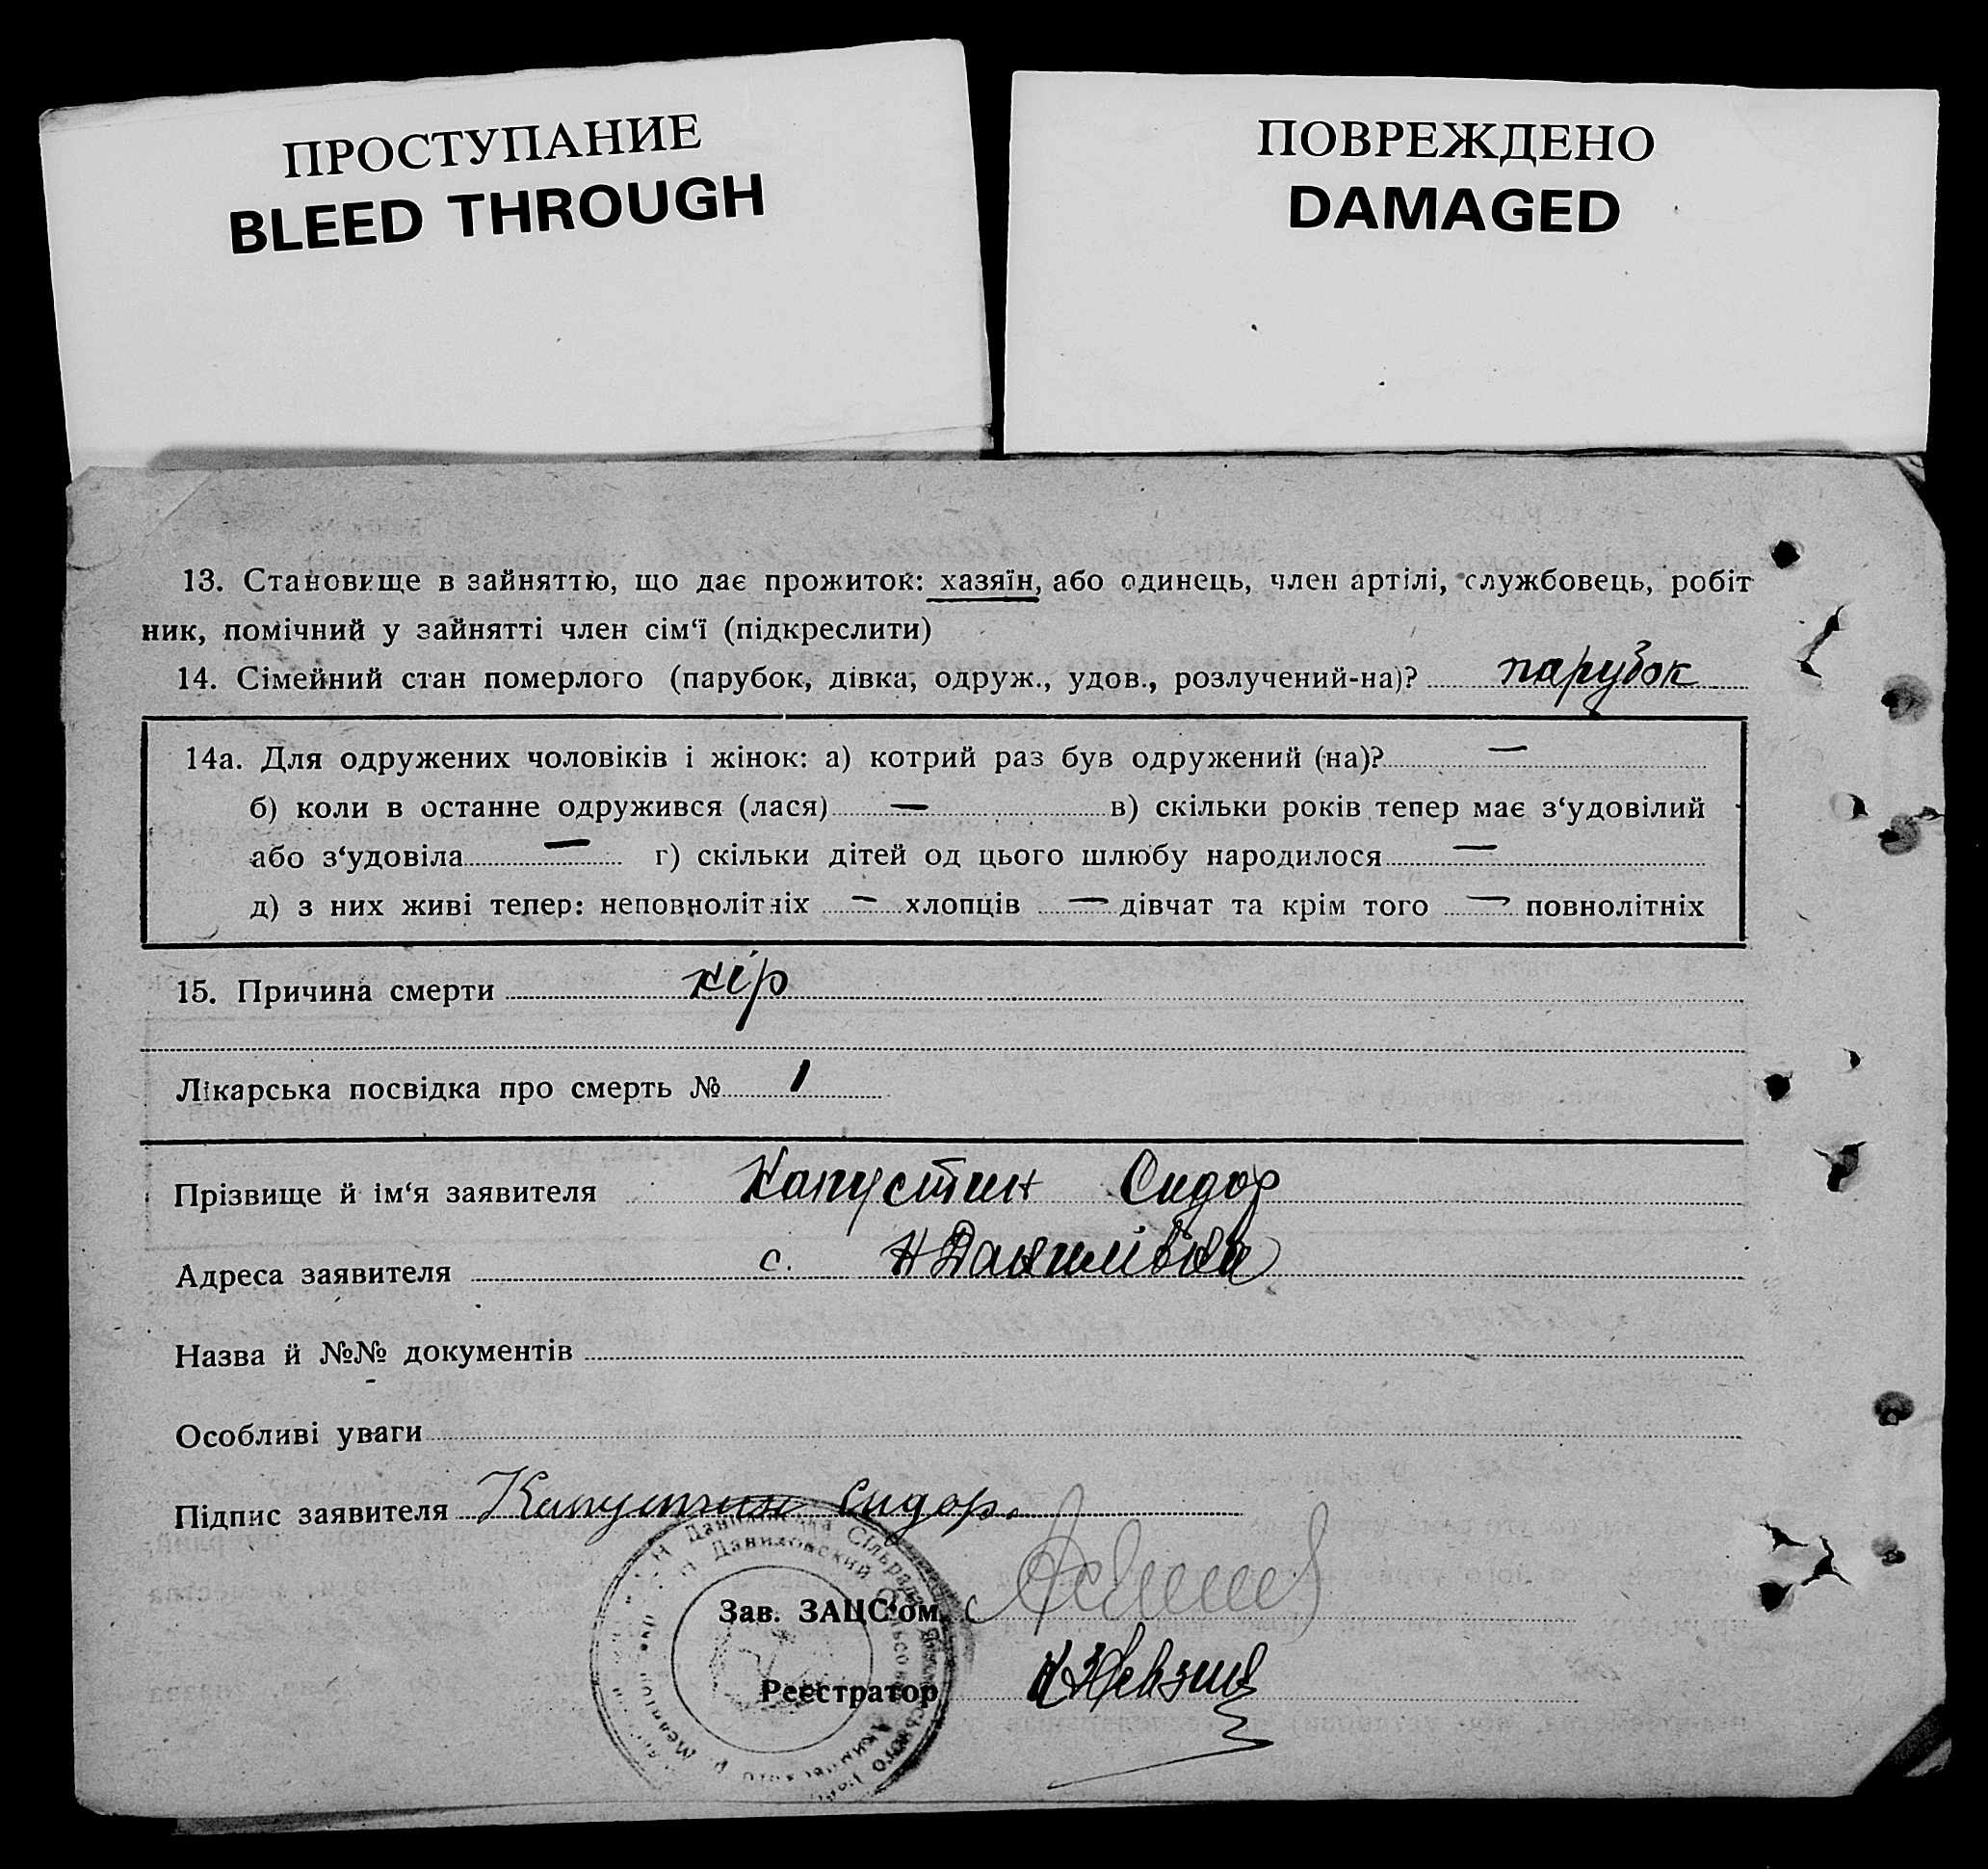 ПРОСТУПАНИЕ
BLEED THROUGH
ПОВРЕЖДЕНО
DAMAGED
13. Становище в зайняттю, що дає прожиток: хазяїн, або одинець, член артілі, службовець, робіт
ник, помічний у зайнятті член сім‘ї (підкреслити)
14. Сімейний стан померлого (парубок, дівка, одруж., удов., розлучений-на)? парубок
14а. Для одружених чоловіків і жінок: а) котрий раз був одружений (на)? —
б) коли в останне одружився (лася) — в) скільки років тепер має з‘удовілий
або з‘удовіла — г) скільки дітей од цього шлюбу народилося —
д) з них живі тепер: неповнолітніх — хлопців — дівчат та крім того — повнолітніх
15. Причина смерти кір
Лікарська посвідка про смерть № 1
Прізвище й ім‘я заявителя Капустин Сидор
Адреса заявителя с. Н Данилівка
Назва й №№ документів
Особливі уваги
Підпис заявителя Капустин Сидор.
Н Данилівська Сільрада
Н Даниловский
Зав. ЗАЦС‘ом
Реєстратор